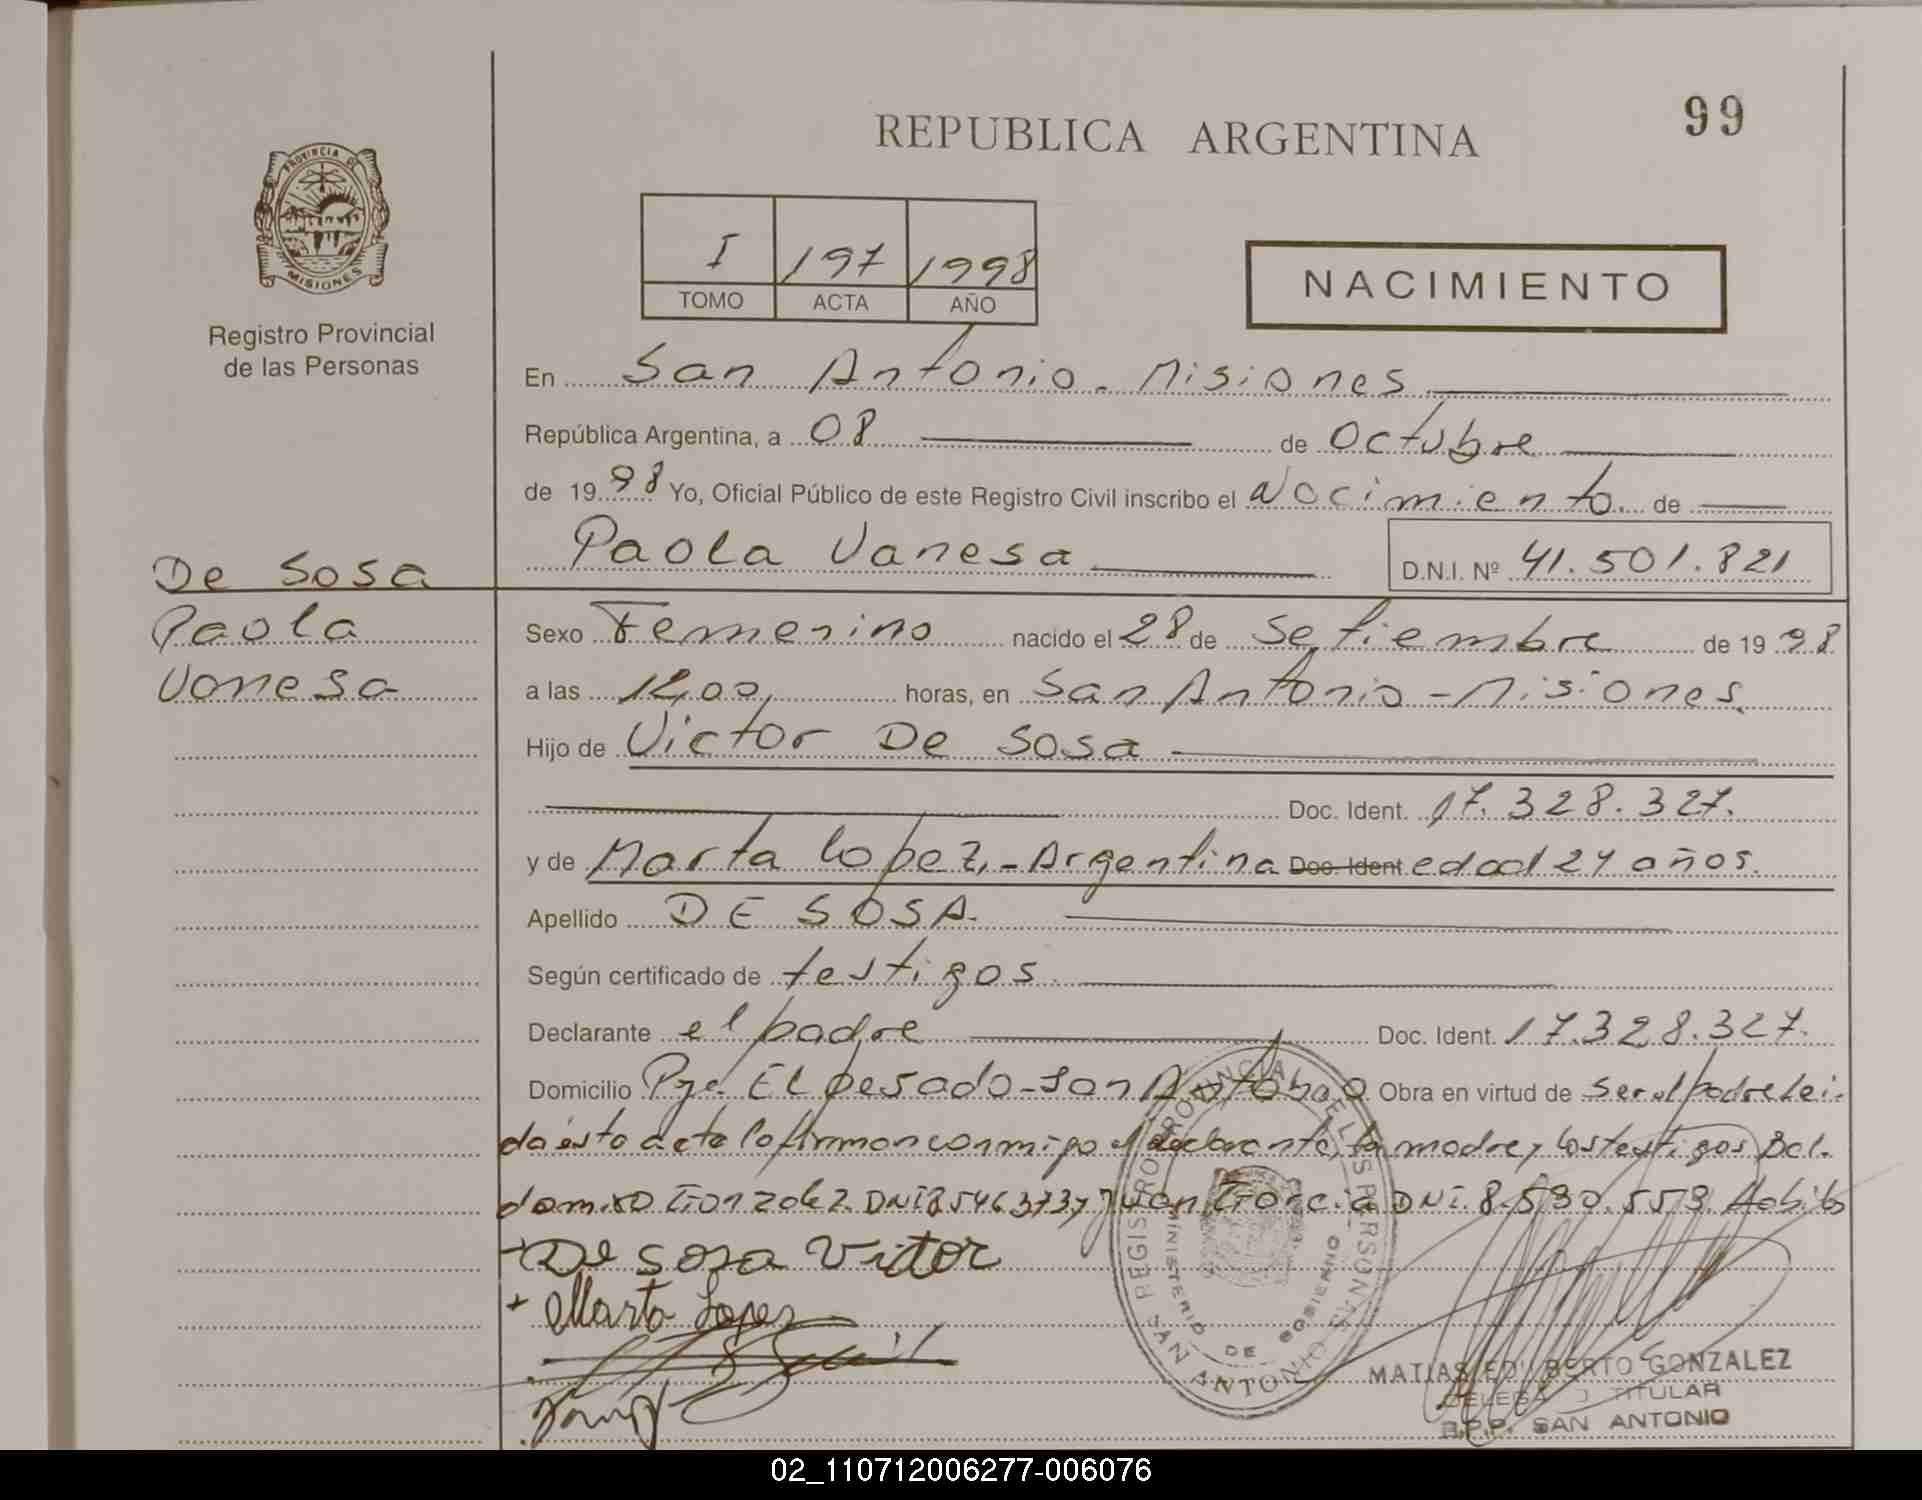 99
REPUBLICA ARGENTINA
PROVINCIA DE MISIONES
Registro Provincial
de las Personas
I 197 1998
TOMO ACTA AÑO
NACIMIENTO
En San Antonio - Misiones
República Argentina, a 08 de Octubre
de 1998 Yo, Oficial Público de este Registro Civil inscribo el Nacimiento. de
Paola Vanesa D.N.I. Nº 41.501.821
De Sosa
Paola
Vanesa
Sexo Femenino nacido el 28 de Setiembre de 1998
a las 12,00, horas, en San Antonio - Misiones.
Hijo de Victor De Sosa
Doc. Ident. 17.328.327.
y de Marta Lopez, - Argentina Doc. Ident edad 24 años.
Apellido DE SOSA.
Según certificado de testigos.
Declarante el padre Doc. Ident. 17.328.327.
Domicilio Pje. El pesado - San Antonio Obra en virtud de ser el padre Lei-
da ésta acta la firman conmigo el declarante, la madre y los testigos Bal-
domiro Gonzalez. DNI 8546373 y Juan Garcia DNI. 8.530.553. Habils
+ De sosa Victor
+ Marta Lopez
REGISTRO PROVINCIAL DE LAS PERSONAS
MINISTERIO DE GOBIERNO
SAN ANTONIO
MATIAS EDILBERTO GONZALEZ
DELEGADO TITULAR
R.P.P. SAN ANTONIO
02_110712006277-006076